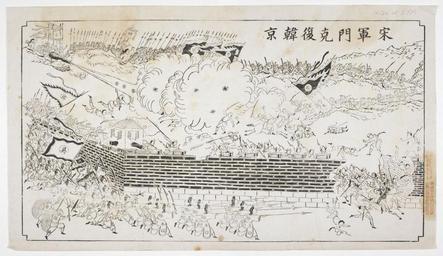 宋軍門克復韓京